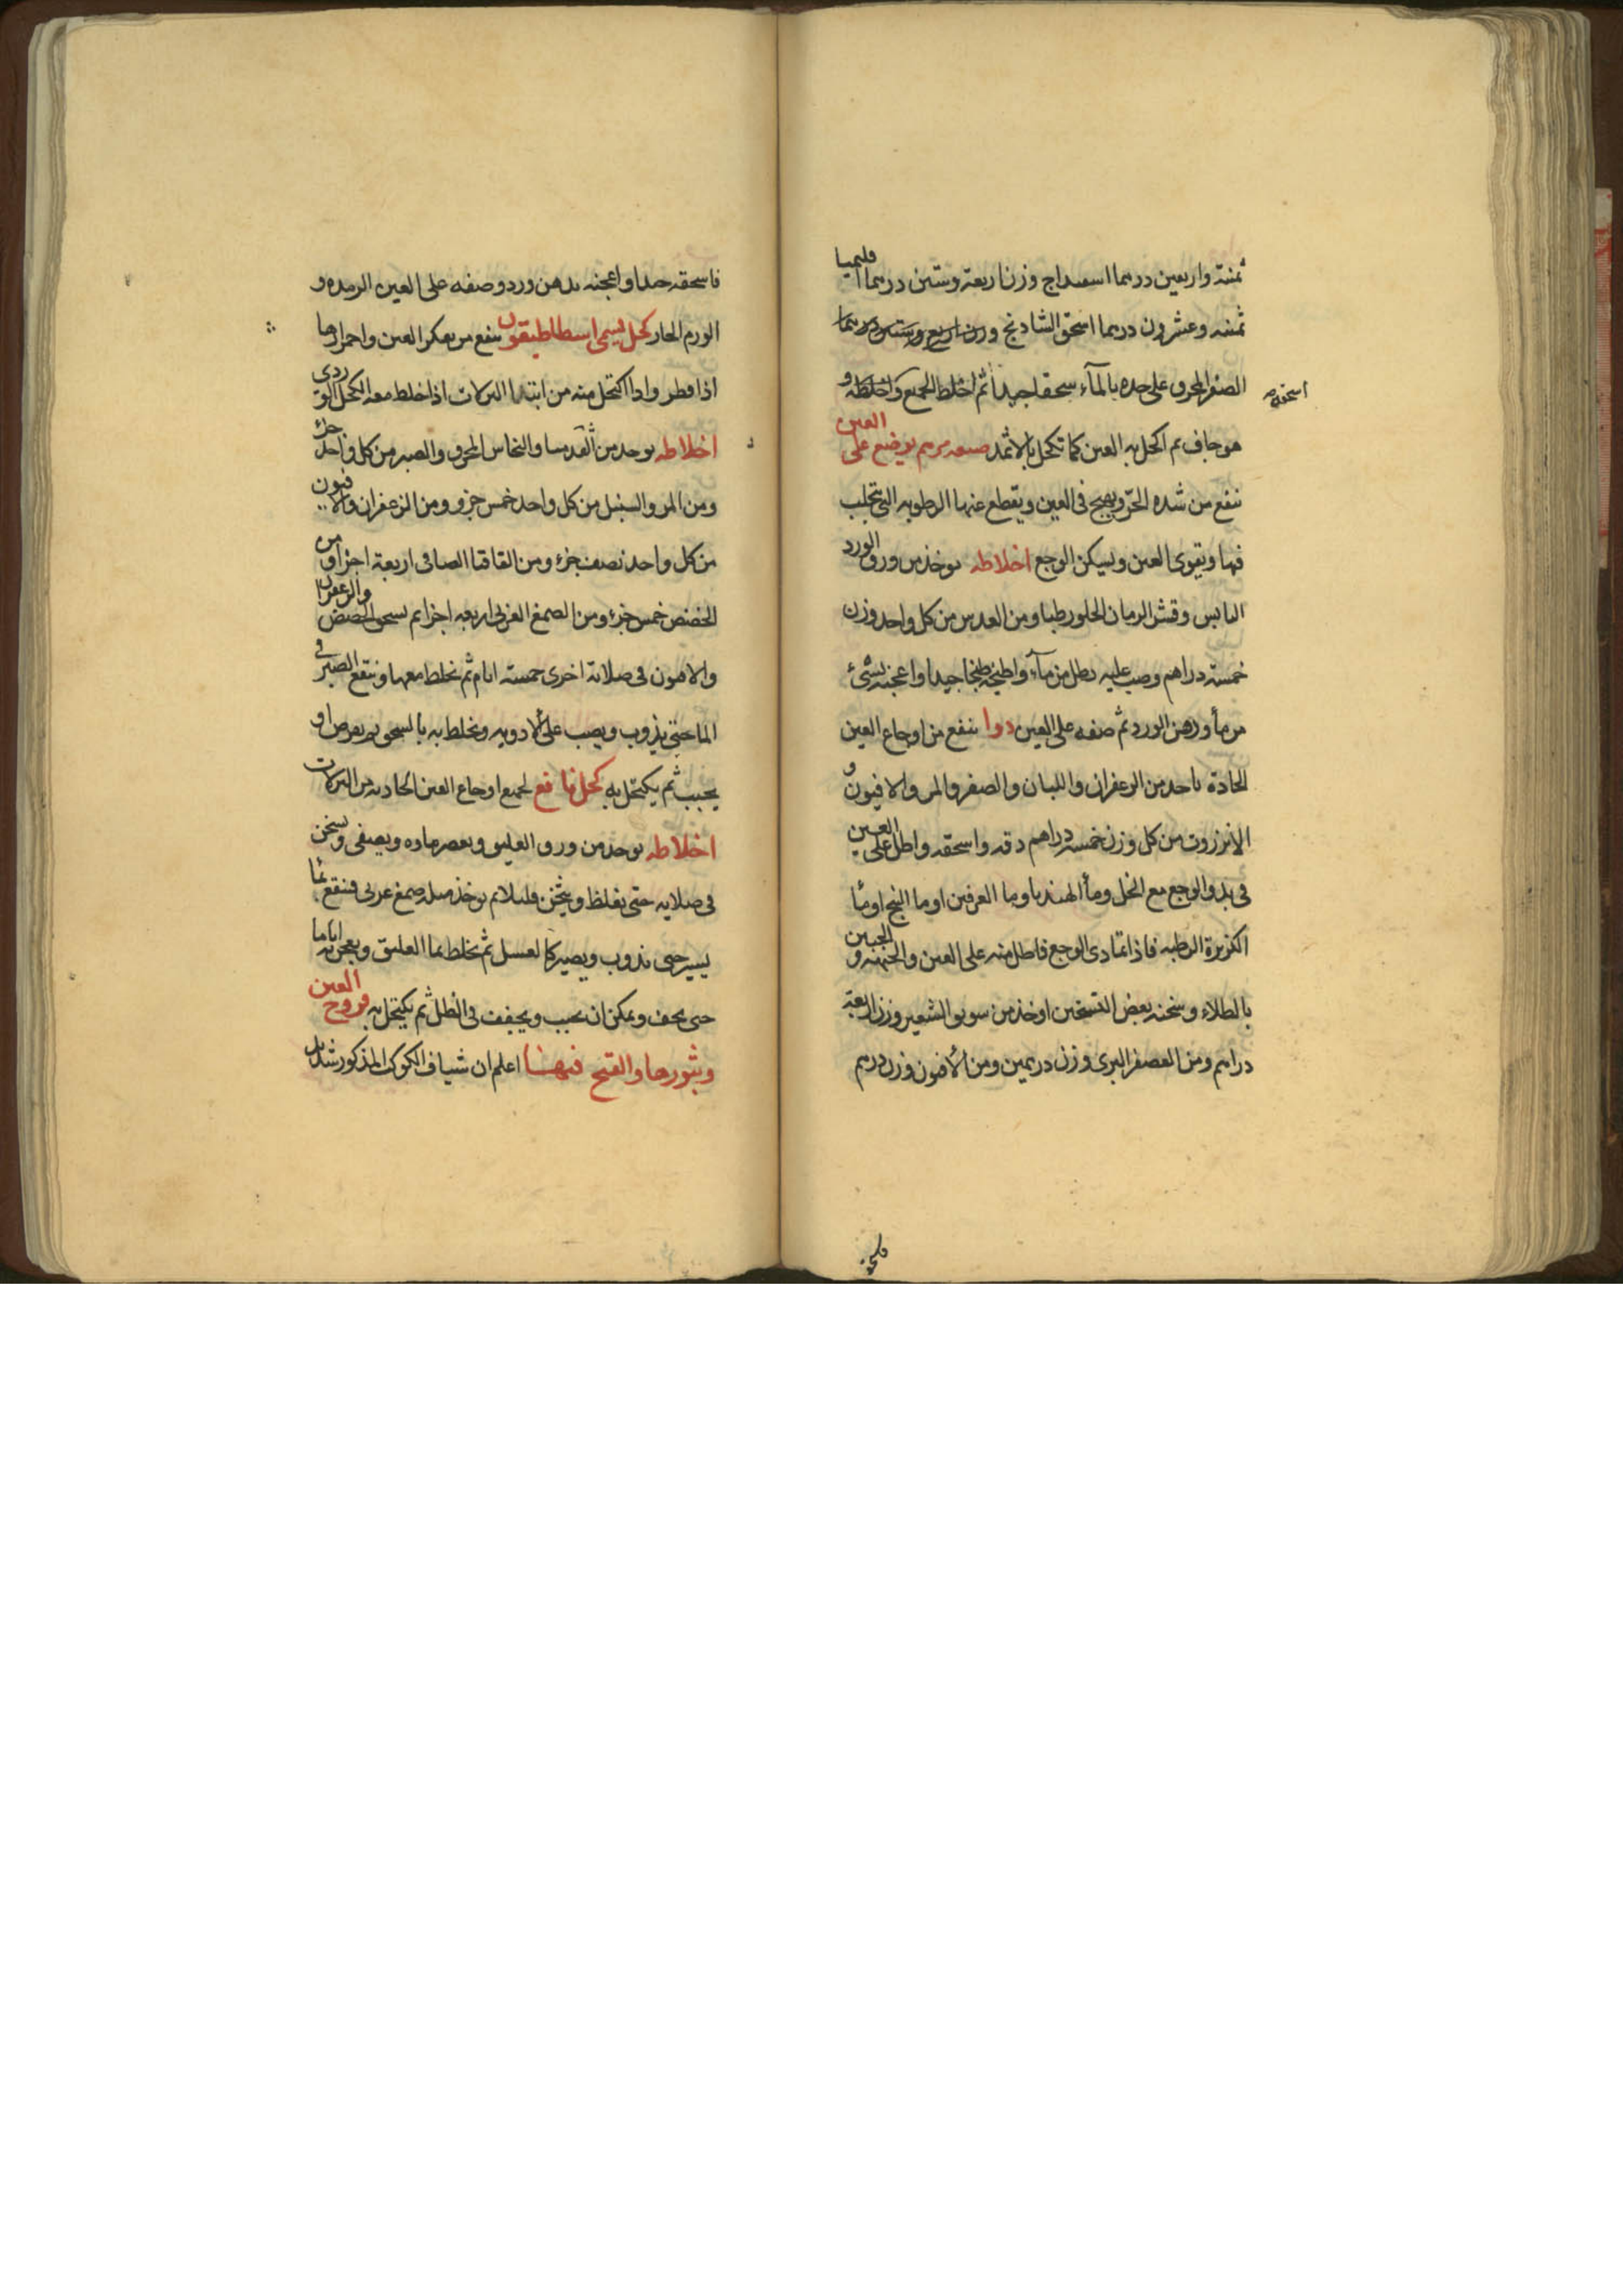 ثمنة واربعين درهما اسفيداج وزن اربعة وستين درهما اقليميا
ثمنية وعشرون درهما اسحق الشاذنج وزن اربع وستين درهما
الصفر المحرق على حده بالمآء سحقا جيدا ثم اخلط الجميع واخلطه و
اسحقه
هو جاف ثم اكحل به العين كما تكحل بالاثمد صفه مرهم يوضع على العين
ينفع من شده الحر ويهيج فى العين ويقطع عنها الرطوبه التى تجلب
فيها ويقوى العين ويسكن الوجع اخلاطه يوخذ من ورق الورد
اليابس وقشر الرمان الحلو رطبا ومن العدس من كل واحد وزن
خمسة دراهم وصب عليه رطل من مآء واطبخه طبخا جيدا واعجنه بشئ
من مآ ودهن الورد ثم ضعه على العين دوا ينفع من اوجاع العين
الحادة ياخذ من الزعفران واللبان والصفر والمر والافيون و
الانزروت من كل وزن خمسة دراهم دقه واسحقه واطل على العين
فى بدو الوجع مع الخل ومآ الهندبا وما العرفين او ما البنج او مآ
الكزبرة الرطبه فاذا تمادى الوجع فاطل منه على العين والجبهه و الجبين
بالطلاء وسخنه بعض التسخين او خذ من سويق الشعير وزن اربعة
دراهم ومن العصفر البرى وزن درهمين ومن الافيون وزن درهم
فاسحقه جيدا واعجنه بدهن ورد وضعه على العين الرمده و
الورم الحار كحل يسمى اسطاطيقون ينفع من بعكر العين واحمرارها
اذا قطر واذا اكتحل منه من ابتدا النزلات اذا خلط معه الكحل الوردى
اخلاطه يوخذ من القدميا والنحاس المحرق والصبر من كل واحد جزء
ومن المر والسنبل من كل واحد خمس جزو ومن الزعفران والافيون
من كل واحد نصف جزء ومن القاقيا الصافى اربعة اجزا ومن
الحضض خمس جزء ومن الصمغ العربى اربعه اجزا ثم يسحق الحضض والزعفران
والافيون فى صلاية اخرى خمسة ايام ثم تخلط معها وينقع الصبر فى
الما حتى يذوب ويصب على الادويه وتخلط به بالسحق ثم يقرص او
يحبب ثم يكتحل به كحل نافع لجميع اوجاع العين الحادثه من النزلات
اخلاطه يوخذ من ورق العليق ويعصر ماوه ويصفى ويسخن
فى صلايه حتى يغلظ ويثخن قليلا ثم يوخذ مثله صمغ عربى فينقع بمآ
يسير حتى يذوب ويصير كالعسل ثم تخلط بما العليق ويعجن به اياما
حتى يجف ويمكن ان يحبب ويجفف فى الظل ثم يكتحل به قروح العين
وبثورها والقيح فيها اعلم ان شياف الكوكب المذكور شديد